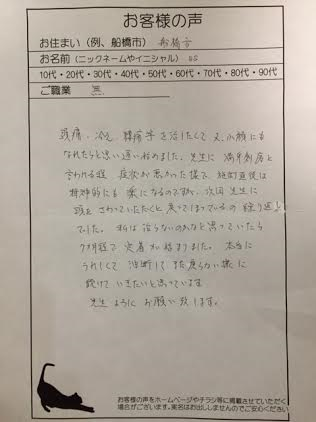 お客様の声
お住まい（例、船橋市） 船橋市
お名前（ニックネームやイニシャル） os
10代・20代・30代・40代・50代・60代・70代・80代・90代
ご職業 無
頭痛、冷え、腰痛等を治したくて 又、小顔にも
なれたらと思い通い始めました。先生に
言われる程、症状が悪かった様で、施術直後は
精神的にも 楽になるのですが、次回 先生に
頭を さわっていただくと 戻ってしまっているの繰り返し
でした。 私は治らないのかなと思っていたら
7ヶ月程で 定着が始まりました。 本当に
うれしくて 油断して また戻らない様に
続けて いきたいと思っています。
先生 お願い致します。
お客様の声をホームページやチラシ等に掲載させていただく
場合がございます。実名はお出ししませんのでご安心ください